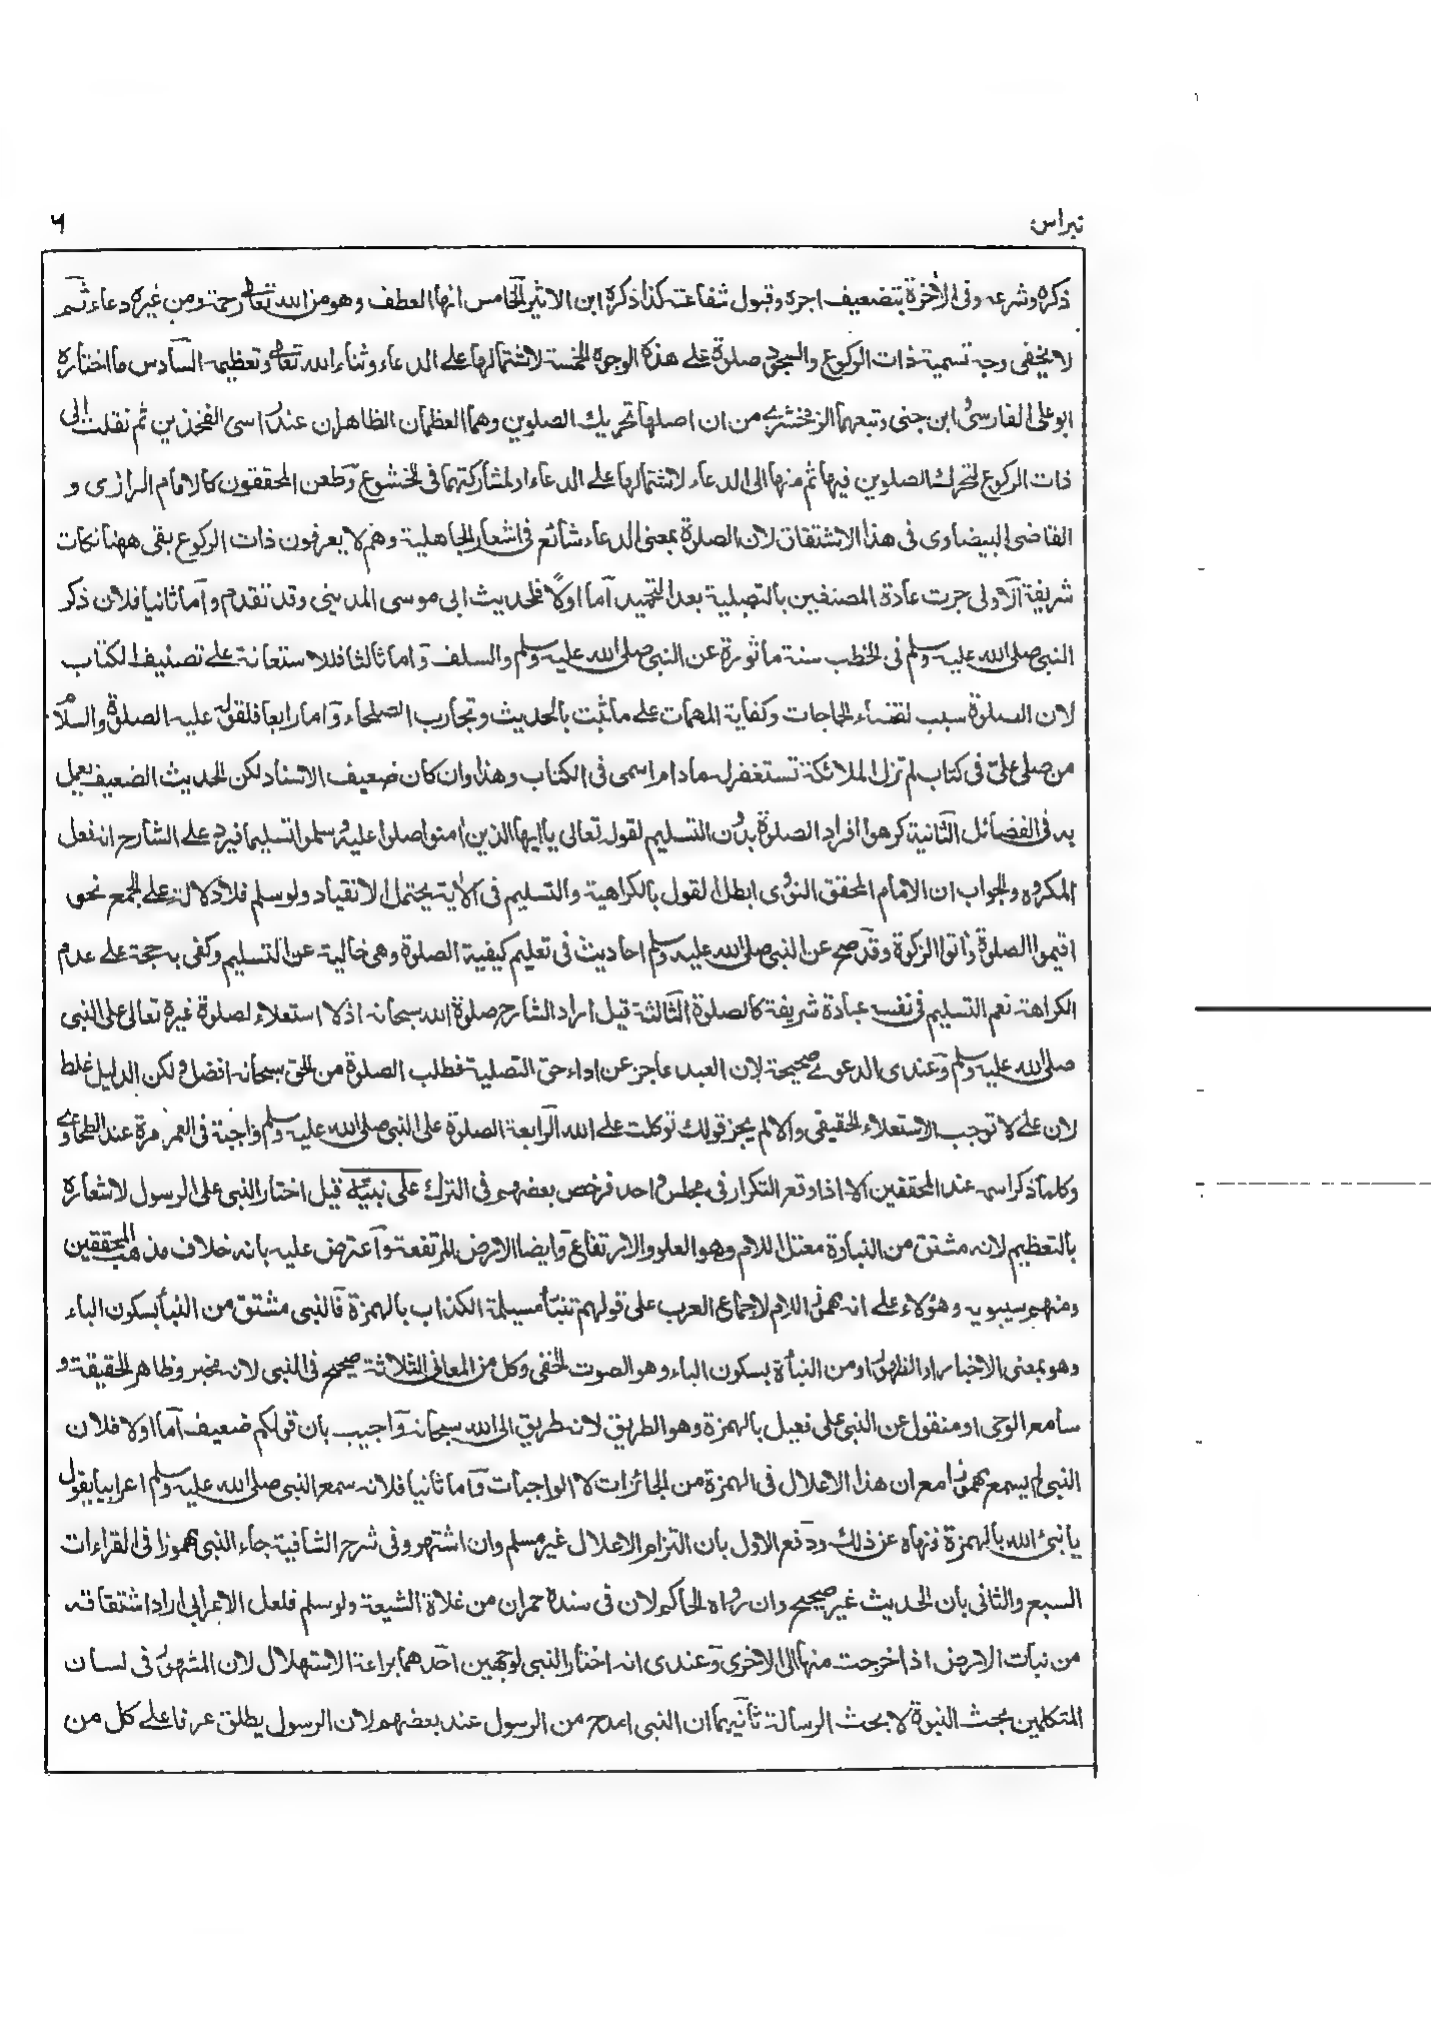 نبراس
٦
ذكره وشرعه وفى الآخرة بتضعيف اجره وقبول شفاعته كذا ذكره ابن الاثير الخامس انها العطف وهو من الله تعالى رحمة ومن غيره دعاء ثم
لا يخفى وجه تسمية ذات الركوع والسجود صلوة على هذه الوجوه الخمسة لاشتمالها على الدعاء وثناء الله تعالى وتعظيمه السادس ما اختاره
ابو على الفارسى وابن جنى وتبعهما الزمخشرى من ان اصلها تحريك الصلوين وهما العظمان الظاهران عند اسى الفخذين ثم نقلت الى
ذات الركوع لتحرك الصلوين فيها ثم منها الى الدعاء لاشتمالها على الدعاء او لمشاركتهما فى الخشوع وطعن المحققون كالامام الرازى و
القاضى البيضاوى فى هذا الاشتقاق لان الصلوة بمعنى الدعاء شائع فى اشعار الجاهلية وهم لا يعرفون ذات الركوع بقى ههنا نكات
شريفة الاولى جرت عادة المصنفين بالتصلية بعد التحميد اما اولا فلحديث ابى موسى المدينى وقد تقدم واما ثانيا فلان ذكر
النبى صلى الله عليه وسلم فى الخطب سنة ماثورة عن النبى صلى الله عليه وسلم والسلف واما ثالثا فللاستعانة على تصنيف الكتاب
لان الصلوة سبب لقضاء الحاجات وكفاية المهمات على ما ثبت بالحديث وتجارب الصلحاء واما رابعا فلقوله عليه الصلوة والسلام
من صلى على فى كتاب لم تزل الملائكة تستغفر له مادام اسمى فى الكتاب وهذا وان كان ضعيف الاسناد لكن الحديث الضعيف يعمل
به فى الفضائل الثانية كرهوا افراد الصلوة بدون التسليم لقوله تعالى يا ايها الذين امنوا صلوا عليه وسلموا تسليما فيرد على الشارح انه فعل
المكروه والجواب ان الامام المحقق النووى ابطل القول بالكراهية والتسليم فى الآية يحتمل الانقياد ولو سلم فلا دلالة على الجمع نحو
اقيموا الصلوة واتوا الزكوة وقد صح عن النبى صلى الله عليه وسلم احاديث فى تعليم كيفية الصلوة وهى خالية عن التسليم وكفى به حجة على عدم
الكراهة نعم التسليم فى نفسه عبادة شريفة كالصلوة الثالثة قيل اراد الشارح صلوة الله سبحانه اذ لا استعلاء لصلوة غيره تعالى على النبى
صلى الله عليه وسلم وعندى الدعوى صحيحة لان العبد عاجز عن اداء حق التصلية فطلب الصلوة من الحق سبحانه افضل ولكن الدليل غلط
لان على لا توجب الاستعلاء الحقيقى والا لم يجز قولك توكلت على الله الرابعة الصلوة على النبى صلى الله عليه وسلم واجبة فى العمر مرة عند الطحاوى
وكلما ذكر اسمه عند المحققين الا اذا وقع التكرار فى مجلس واحد فرخص بعضهم فى الترك على نبيه قيل اختار النبى على الرسول لاشعاره
بالتعظيم لانه مشتق من النباوة معتل اللام وهو العلو والارتفاع وايضا الارض المرتفعة واعترض عليه بانه خلاف مذهب المحققين
ومنهم سيبويه وهؤلاء على انه مهموز اللام لاجماع العرب على قولهم تنبأ مسيلمة الكذاب بالهمزة فالنبى مشتق من النبأ بسكون الباء
وهو بمعنى الاخبار او الظهور او من النبأة بسكون الباء وهو الصوت الخفى وكل من المعانى الثلاثة صحيح فى النبى لانه مخبر وظاهر الحقيقة و
سامع الوحى او منقول عن النبئ على فعيل بالهمزة وهو الطريق لانه طريق الى الله سبحانه واجيب بان قولكم ضعيف اما اولا فلان
النبى لم يسمع مهموزا مع ان هذا الاعلال فى الهمزة من الجائزات لا الواجبات واما ثانيا فلانه سمع النبى صلى الله عليه وسلم اعرابيا يقول
يا نبئ الله بالهمزة فنهاه عن ذلك ودفع الاول بان التزام الاعلال غير مسلم وان اشتهر وفى شرح الشافية جاء النبى مهموزا فى القراءات
السبع والثانى بان الحديث غير صحيح وان رواه الحاكم لان فى سنده حمران من غلاة الشيعة ولو سلم فلعل الاعرابى اراد اشتقاقه
من نبأت الارض اذا خرجت منها الى الاخرى وعندى انه اختار النبى لوجهين احدهما براعة الاستهلال لان المشهور فى لسان
المتكلمين بحث النبوة لا بحث الرسالة ثانيهما ان النبى امدح من الرسول عند بعضهم لان الرسول يطلق عرفا على كل من